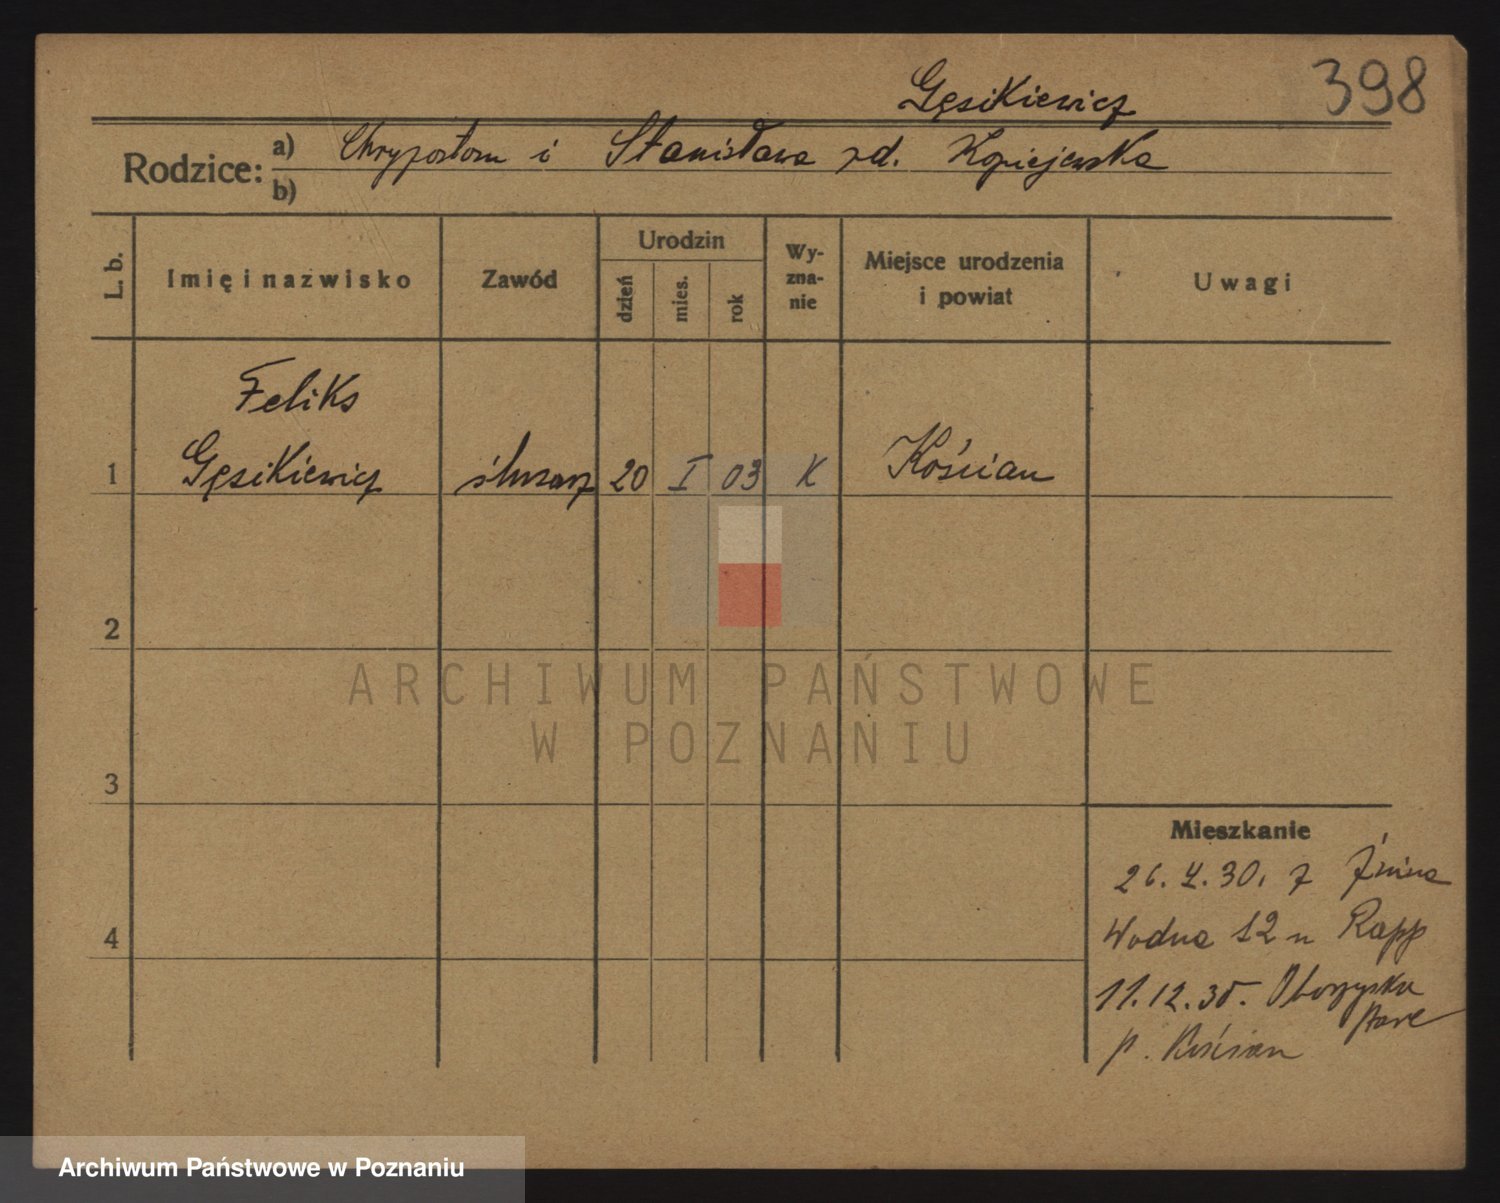 398
Gęsikiewicz
Rodzice: a) Chryzostom i Stanisława zd. Kopiejewska
b)
L. b. Imię i nazwisko Zawód Urodzin dzień mies. rok Wy-zna-nie Miejsce urodzenia i powiat Uwagi
Feliks
1 Gęsikiewicz ślusarz 20 I 03 K Kościan
2
ARCHIWUM PAŃSTWOWE
W POZNANIU
3
Mieszkanie
26. 4. 30. z Żnina
4 Wodna 12 u Rapp
11.12.35. Oborzyska
Stare
p. Kościan
Archiwum Państwowe w Poznaniu